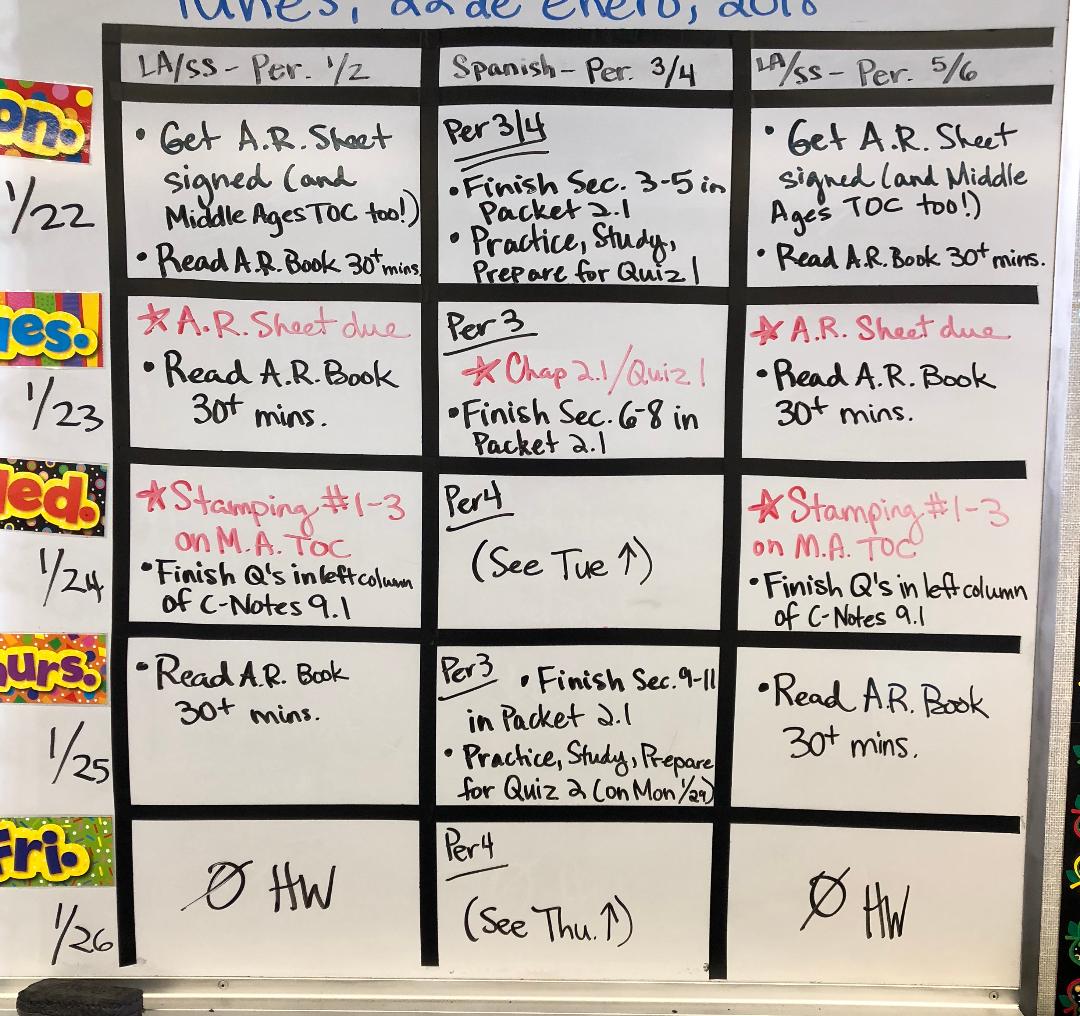 lunes, 22 de enero, 2018
LA/SS - Per. 1/2
Spanish - Per. 3/4
LA/SS - Per. 5/6
on.
1/22
• Get A.R. Sheet
signed (and
Middle Ages TOC too!)
• Read A.R. Book 30+ mins.
Per 3/4
• Finish Sec. 3-5 in
Packet 2.1
• Practice, Study,
Prepare for Quiz 1
• Get A.R. Sheet
signed (and Middle
Ages TOC too!)
• Read A.R. Book 30+ mins.
ues.
1/23
☆ A.R. Sheet due
• Read A.R. Book
30+ mins.
Per 3
☆ Chap 2.1/Quiz 1
• Finish Sec. 6-8 in
Packet 2.1
☆ A.R. Sheet due
• Read A.R. Book
30+ mins.
ed.
1/24
☆ Stamping #1-3
on M.A. TOC
• Finish Q's in left column
of C-Notes 9.1
Per 4
(See Tue ↑)
☆ Stamping #1-3
on M.A. TOC
• Finish Q's in left column
of C-Notes 9.1
urs.
1/25
• Read A.R. Book
30+ mins.
Per 3 • Finish Sec. 9-11
in Packet 2.1
• Practice, Study, Prepare
for Quiz 2 (on Mon 1/29)
• Read A.R. Book
30+ mins.
Fri.
1/26
Ø HW
Per 4
(See Thu. ↑)
Ø HW